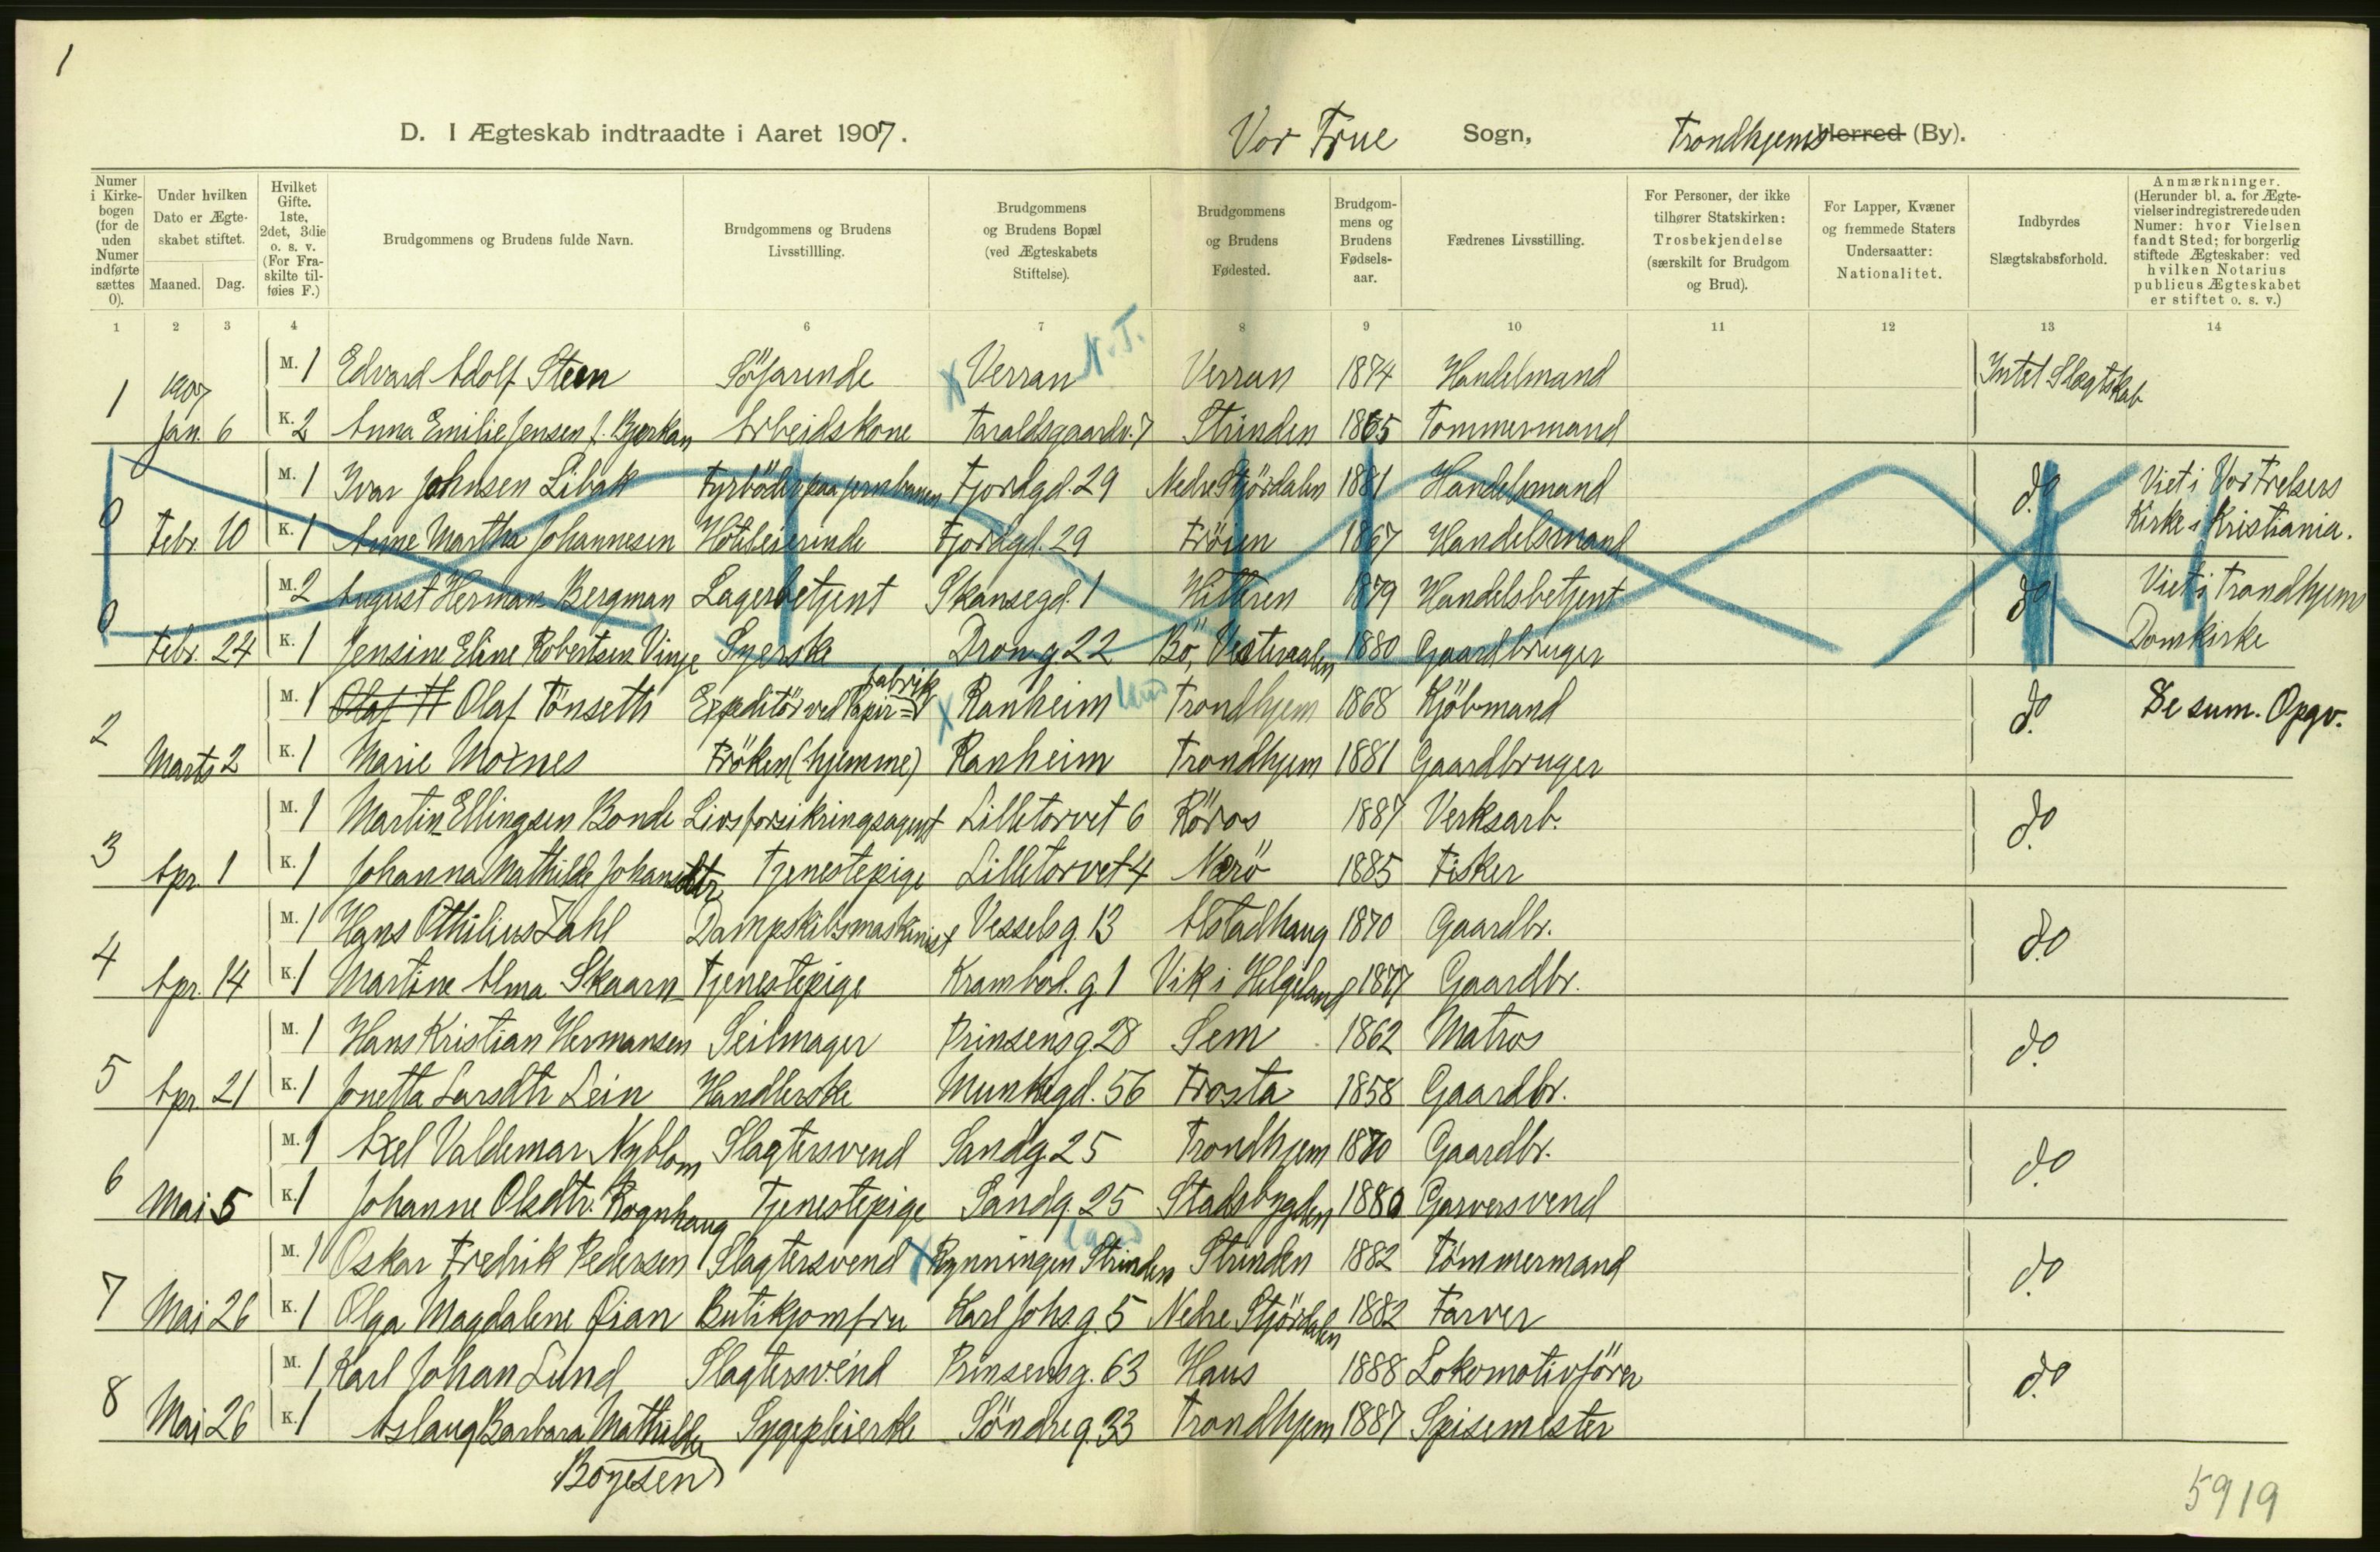 1
D. I Ægteskab indtraadte i Aaret 1907. Vor Frue Sogn, Trondhjems Herred (By).
Numer i Kirkebogen (for de uden Numer indførte sættes 0).
Under hvilken Dato er Ægteskabet stiftet.
Maaned. Dag.
Hvilket Gifte. 1ste, 2det, 3die o. s. v. (For Fraskilte tilføies F.)
Brudgommens og Brudens fulde Navn.
Brudgommens og Brudens Livsstillling.
Brudgommens og Brudens Bopæl (ved Ægteskabets Stiftelse).
Brudgommens og Brudens Fødested.
Brudgommens og Brudens Fødselsaar.
Fædrenes Livsstilling.
For Personer, der ikke tilhører Statskirken: Trosbekjendelse (særskilt for Brudgom og Brud).
For Lapper, Kvæner og fremmede Staters Undersaatter: Nationalitet.
Indbyrdes Slægtskabsforhold.
Anmærkninger. (Herunder bl. a. for Ægtevielser indregistrerede uden Numer: hvor Vielsen fandt Sted; for borgerlig stiftede Ægteskaber: ved hvilken Notarius publicus Ægteskabet er stiftet o. s. v.)
1 2 3 4 6 7 8 9 10 11 12 13 14
N. T.
1 1907 M. 1 Edvard Adolf Steen Söfarende X Verran Verran 1874 Handelmand Intet Slægtskab
Jan. 6 K. 2 Anna Emilie Jensen f. Bjerkan Arbeidskone Taraldsgaardv. 7 Strinden 1865 Tømmermand
0 M. 1 Ivar Johnsen Libak Fyrböder paa jernbanen Fjordgd. 29 Nedre Stjördalen 1881 Handelsmand do Viet i Vor Frelsers
Febr. 10 K. 1 Anne Martha Johannesen Hoteleierinde Fjordgd. 29 Fröien 1867 Handelsmand Kirke i Kristiania.
0 M. 2 August Herman Bergman Lagerbetjent Skansegd. 1 Hitteren 1879 Handelsbetjent do Viet i Trondhjems
Febr. 24 K. 1 Jensine Eline Robertsen Vinje Syerske Dron. g. 22 Bö, Vesteraalen 1880 Gaardbruger Domkirke
2 M. 1 Olaf H Olaf Tönseth Expeditör ved Papir= fabrik X Ranheim Trondhjem 1868 Kjöbmand do Se sum. Opgv.
Marts 2 K. 1 Marie Moxnes Fröken (hjemme) Ranheim Trondhjem 1881 Gaardbruger
3 M. 1 Martin Ellingsen Bonde Livsforsikringsagent Lilletorvet 6 Röros 1887 Verksarb. do
Apr. 1 K. 1 Johanna Mathilde Johansdtr Tjenestepige Lilletorvet 4 Nærö 1885 Fisker
4 M. 1 Hans Othilius Zahl Dampskibsmaskinist Vesselsg. 13 Alstadhaug 1870 Gaardbr. do
Apr. 14 K. 1 Martine Alma Skaarn Tjenestepige Krambod. g. 1 Vik i Helgeland 1877 Gaardbr.
5 M. 1 Hans Kristian Hermansen Seilmager Prinsensg. 28 Sem 1862 Matros do
Apr. 21 K. 1 Jonetta Larsdtr Lein Handlerske Munkegd. 56 Frosta 1858 Gaardbr.
6 M. 1 Axel Valdemar Nyblom Slagtersvend Sandg. 25 Trondhjem 1870 Gaardbr. do
Mai 5 K. 1 Johanne Olsdtr. Rognhaug Tjenestepige Sandg. 25 Stadsbygden 1880 Garversvend
7 M. 1 Oskar Fredrik Pedersen Slagtersvend X Rynningen Strinden Strinden 1882 Tömmermand do
Mai 26 K. 1 Olga Magdalene Øian Butikjomfru Karl Johs. g. 5 Nedre Stjördalen 1882 Farver
8 M. 1 Karl Johan Lund Slagtersvend Prinsensg. 63 Haus 1888 Lokomotivförer do
Mai 26 K. 1 Aslaug Barbara Mathilde Sygepleierske Söndreg. 33 Trondhjem 1887 Spisemester
Boyesen
5919